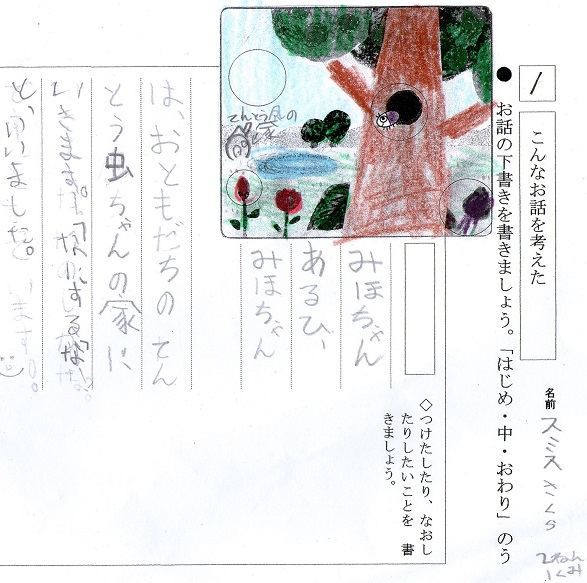 1
こんなお話を考えた
名前 スミス さくら
2ねん
1くみ
● お話の下書きを書きましょう。「はじめ・中・おわり」のう
◇つけたしたり、なおし
たりしたいことを 書
きましょう。
てんとう虫の
家
みほちゃん
あるひ、
みほちゃん
は、おともだちの てん
とう虫ちゃんの家に
いきます。
といいました。